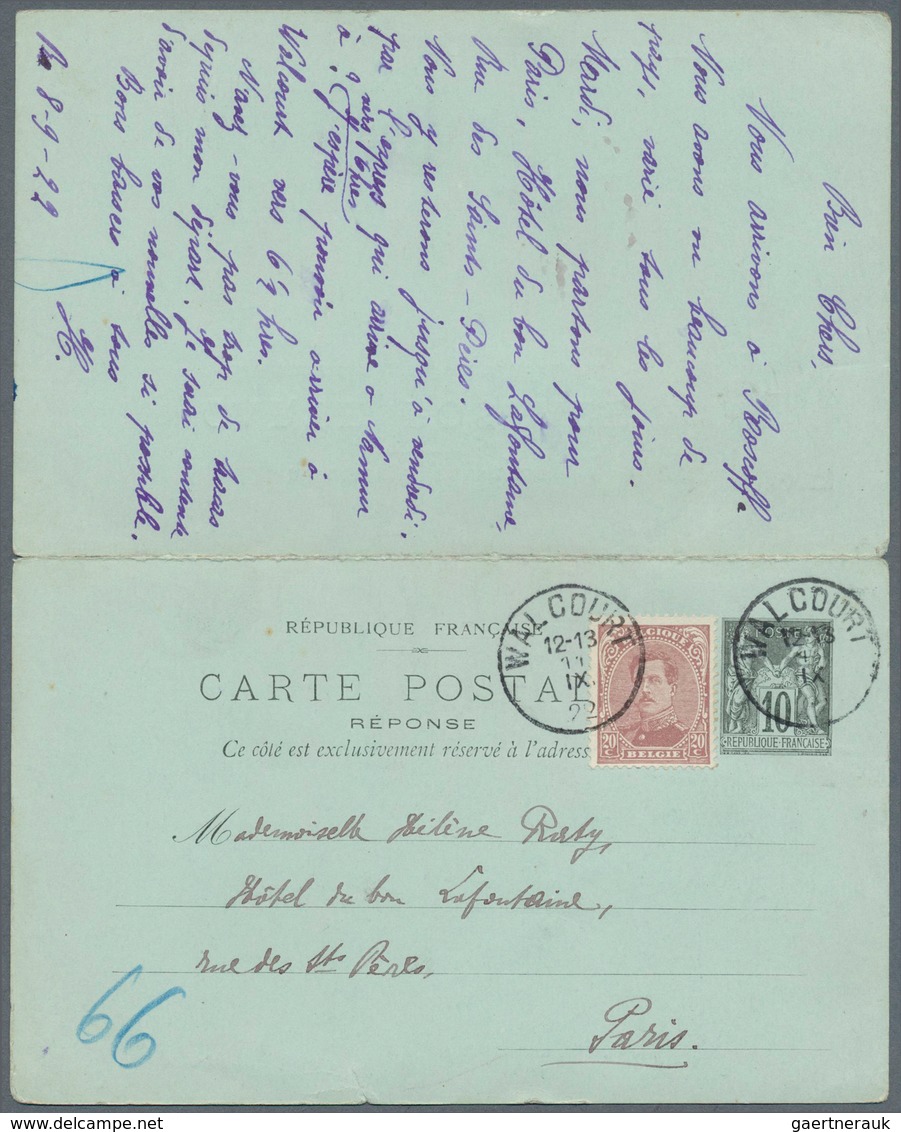 Bien Chers,
Nous arrivons à Roscoff.
Nous avons vu beaucoup de
pays, varié tous les jours.
Mardi, nous partons pour
Paris, Hôtel du bon Lafontaine,
Rue des Saints-Pères.
Nous y resterons jusqu'à vendredi.
par l'express qui arrive à Namur
à ? vers 16 hres
J'espère pouvoir arriver à
Walcourt vers 6½ hres.
N'avez-vous pas trop de tracas
depuis mon départ. Je serai contente
d'avoir de vos nouvelles si possible.
Bons baisers à tous
H.
R. 8-9-22
RÉPUBLIQUE FRANÇAISE
CARTE POSTAL
RÉPONSE
Ce côté est exclusivement réservé à l'adress
WALCOURT
12-13
11
IX
22
BELGIQUE
20 c
20 c
BELGIE
WALCOURT
12-13
IX
POSTES
10
REPUBLIQUE FRANÇAISE
Mademoiselle Hélène Raty,
Hôtel du bon Lafontaine,
rue des Sts Pères,
Paris.
66
gaertnerauk